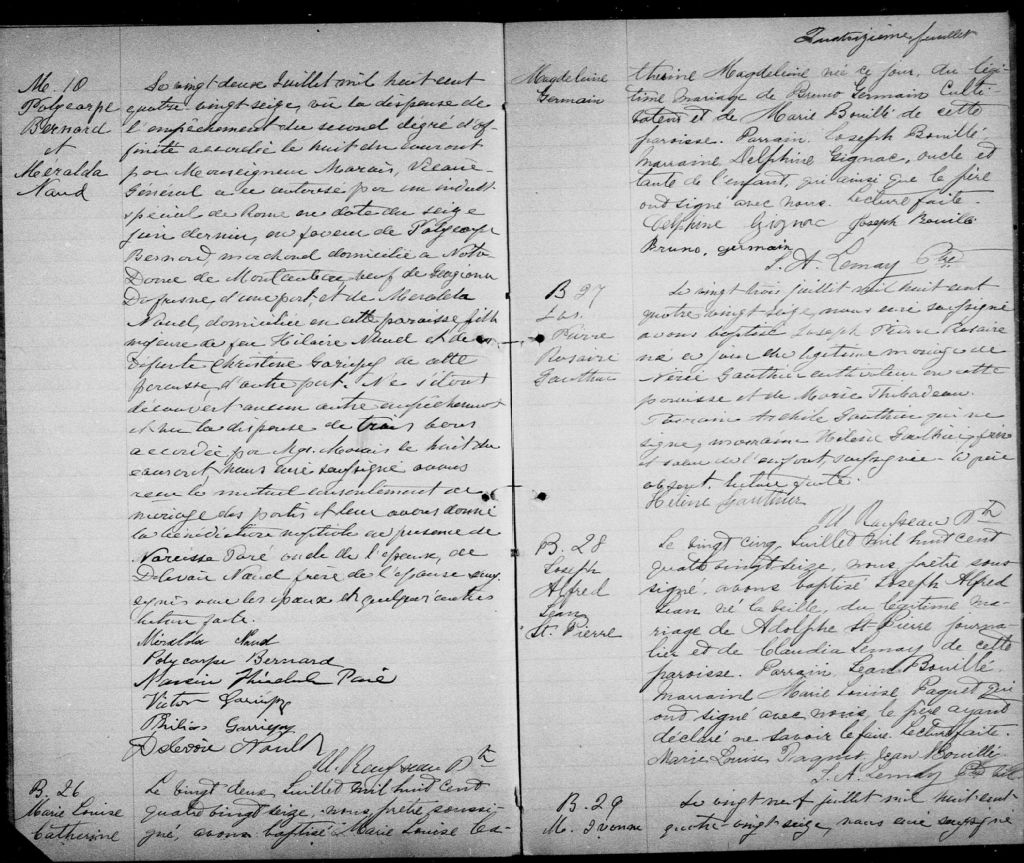 M. 10
Polycarpe
Bernard
et
Méralda
Naud
Le vingt deux Juillet mil huit cent
quatre vingt seize, vu la dispense de
l'empêchement du second dégré d'af-
finité accordée le huit du courant
par Monseigneur Marois, Vicaire
Général à ce autorisé par un indult
spécial de Rome en date du seize
juin dernier, en faveur de Polycarpe
Bernard, marchand domicilié à Notre
Dame de Montauban, veuf de Georgiana
Dufresne d'une part et de Meralda
Naud, domiciliée en cette paroisse, fille
majeure de feu Hilaire Naud et de
Défunte Christine Gariépy de cette
paroisse, d'autre part. Ne s'étant
découvert aucun autre empêchement
et vu la dispense de trois bans
accordée par Mgr. Marois le huit du
courant Nous curé soussigné avons
reçu le mutuel consentement de
mariage des parties et leur avons donné
la bénédiction nuptiale en présence de
Narcisse Paré oncle de l'épouse, de
Delavoie Naud frère de l'épouse sous-
signés avec les époux et quelques autres
lecture faite.
Méralda Naud
Polycarpe Bernard
Paré
Victor Gariépy
Philias Gariépy
Nault
M. Rousseau Ptr
B. 26
Marie Louise
Catherine
Le vingt deux Juillet mil huit cent
quatre vingt seize, nous prêtre soussi-
gné, avons baptisé Marie Louise Ca-
Quatrizième feuillet
Magdeleine
Germain
therine Magdeleine née ce jour, du légi-
time mariage de Bruno Germain Culti-
vateur et de Marie Bouillé de cette
paroisse. Parrain Joseph Bouillé
marraine Delphine Gignac, oncle et
tante de l'enfant, qui ainsi que le père
ont signé avec nous. Lecture faite.
Delphine Gignac Joseph Bouillé
Bruno, germain
J. A. Lemay Ptre
B 27
Jos.
Pierre
Rosaire
Gauthier
Le vingt trois juillet mil huit cent
quatre vingt seize, nous curé soussigné
avons baptisé Joseph Pierre Rosaire
né ce jour du légitime mariage de
Nérée Gauthier cultivateur en cette
paroisse et de Marie Thibodeau
Parrain Gauthier qui ne
signe, marraine Hélène Gauthier frère
et soeur de l'enfant, soussignée. Le père
absent. lecture faite.
Hélène Gauthier
M Rousseau Ptr
B. 28
Joseph
Alfred
Jean
St. Pierre
Le vingt cinq Juillet mil huit cent
quatre vingt seize, nous prêtre sous-
signé avons baptisé Joseph Alfred
Jean né la veille, du légitime ma-
riage de Adolphe St Pierre journa-
lier et de Claudia Lemay de cette
paroisse. Parrain Jean Bouillé.
Marraine Marie Louise Paquet qui
ont signé avec nous, le père ayant
déclaré ne savoir le faire. Lecture faite.
Marie Louise Paquet Jean Bouillé
J. A. Lemay Ptre
B. 29
M. Ivonne
Le vingt neuf juillet mil huit cent
quatre-vingt seize, nous curé soussigné